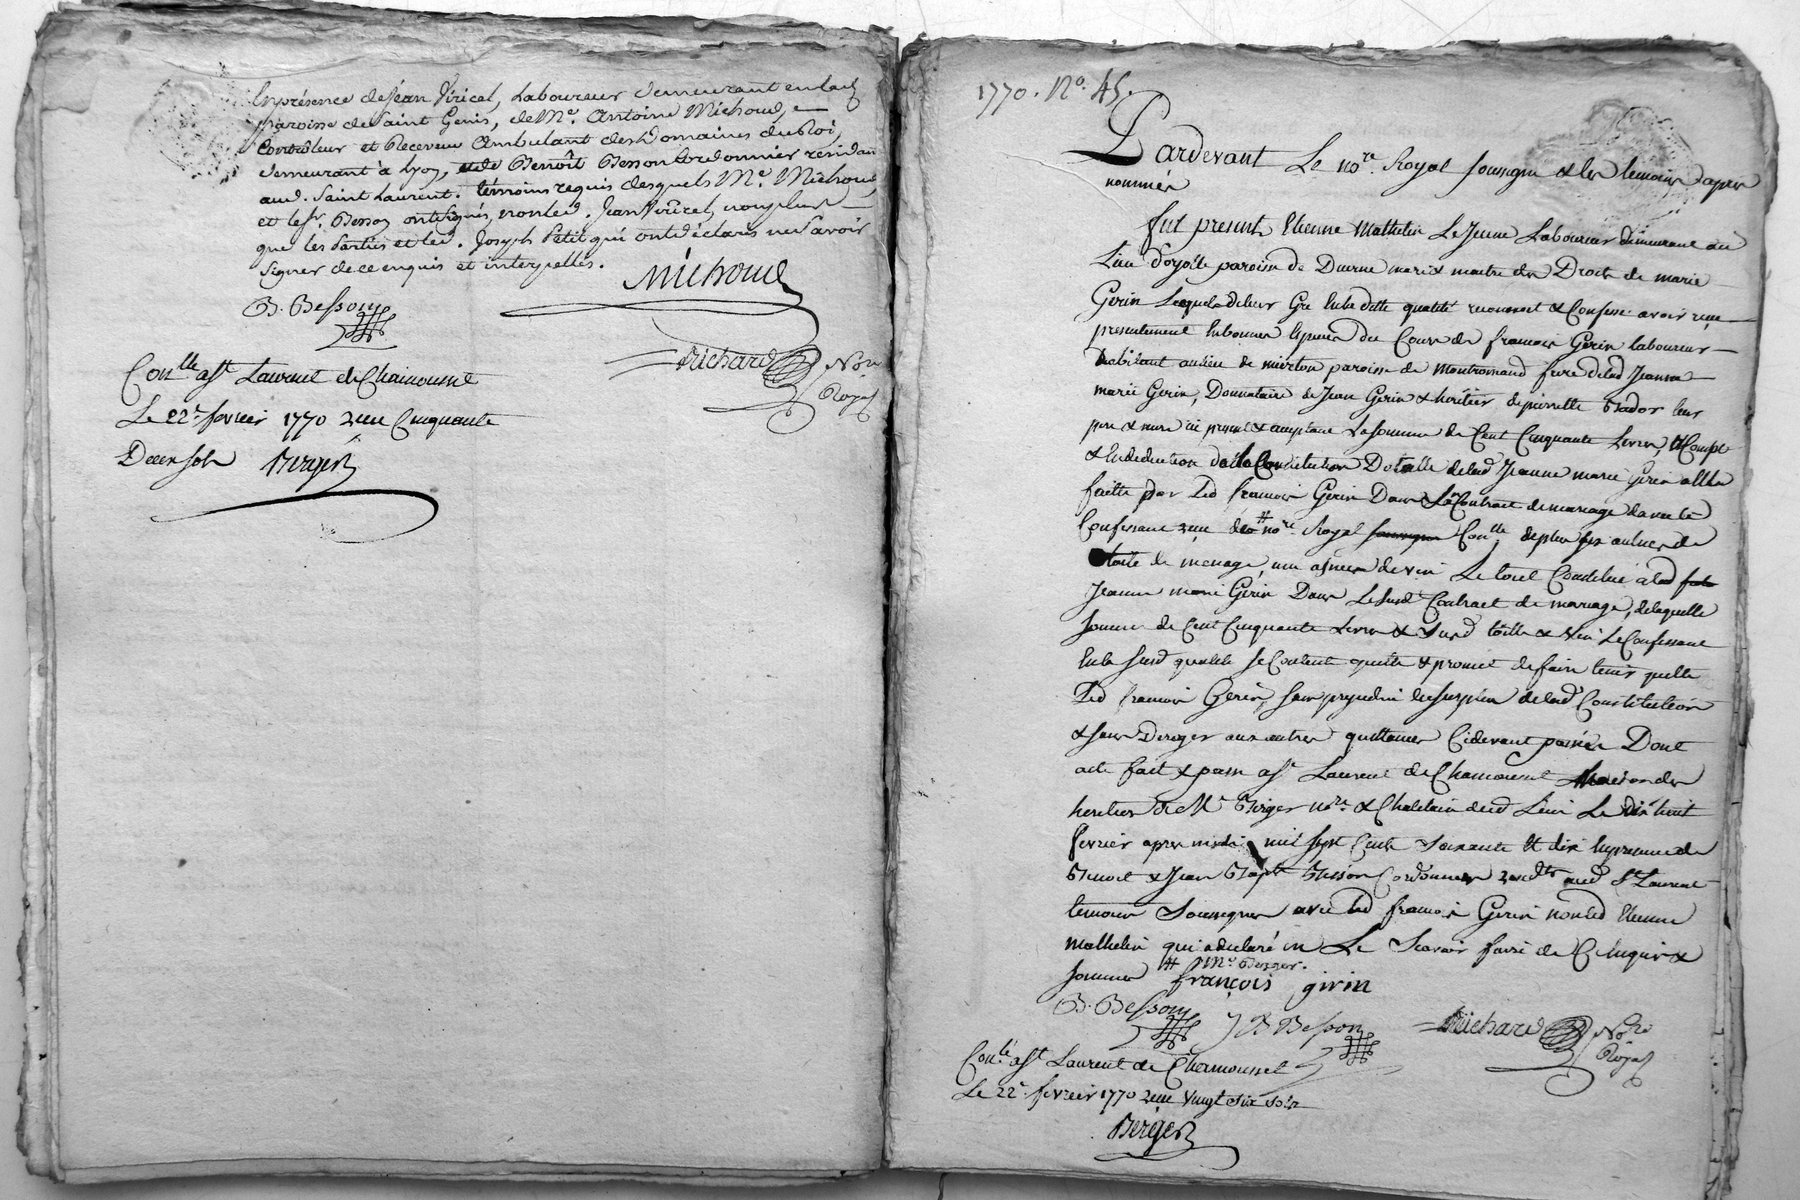 En présence de Jean Viricel, Laboureur demeurant en lad.
Paroisse de Saint Genis, de Me. Antoine Michoud,
Controlleur et Receveur Ambulant des Domaines du Roi,
demeurant à Lyon, et de Benoît Besson Cordonnier résidant
aud. Saint Laurent. témoins requis desquels Me. Michoud,
et le Sr. Besson ont signés, non led. Jean Viricel, non plus
que les Parties et led. Joseph Petit qui ont déclarés ne savoir
signer de ce enquis et interpellés.
Michoud
B. Besson
Richard Nore
Royal
Conlle a St Laurent de Chamousset
Le 22e fevrier 1770 reçu Cinquante
Deux sols Berger
1770. No. 45.
Pardevant Le nore. Royal soussigné & les temoins d'apres
nommés
fut present Etienne Mathelin Le Jeune Laboureur demeurant au
Lieu d'oyolle paroisse de Duerne mari & maitre des Droits de marie
Gerin Lequel de leur Gré En la ditte qualité reconnoit & Confesse avoir reçu
presentement En bonnes Especes du Cours de francois Gerin laboureur
habitant au lieu de paroisse de Montromand frere de lad. Jeanne
marie Gerin, Donnataire de Jean Gerin & heritier de pierrette Bador leur
pere & mere ici present & acceptant La somme de Cent Cinquante Livres, a Compte
& En deduction de la Constitution Dotalle de lad. Jeanne marie Gerin a Elle
faitte par Led. francois Gerin Dans Le Contract de mariage d'avec le
Confessant reçu nore. Royal soussigné Conllé, de plus six aulnes de
toille de menage, une asnée de vin Le tout Constitué a lad.
Jeanne marie Gerin Dans Le susd. Contract de mariage, de laquelle
somme de Cent Cinquante Livres & susd. toille & vin Le Confessant
En la susd. qualité se Contente quitte & promet de faire tenir quitte
Led. francois Gerin, sans prejudice du surplus de lad. Constitution
& sans Deroger aux autres quittances Cidevant passées Dont
acte fait & passé a St Laurent de Chamousset Maison des
heritiers de Me Berger nore. & Chatelain dud. Lieu Le dix huit
fevrier apres midi mil sept Cents Soixante Et dix En presence de
Benoit & Jean Bapte Besson Cordonniers resdts aud. St Laurent
temoins Soussignés avec Led. francois Gerin non led. Etienne
mathelin qui a declaré ne Le Scavoir faire de Ce Enquis &
sommé # Me Berger.
françois girin
B. Besson J B Besson Richard Nore
Royal
Conlé a St Laurent de Chamousset
Le 22e. fevrier 1770 reçu vingt six sols
Berger